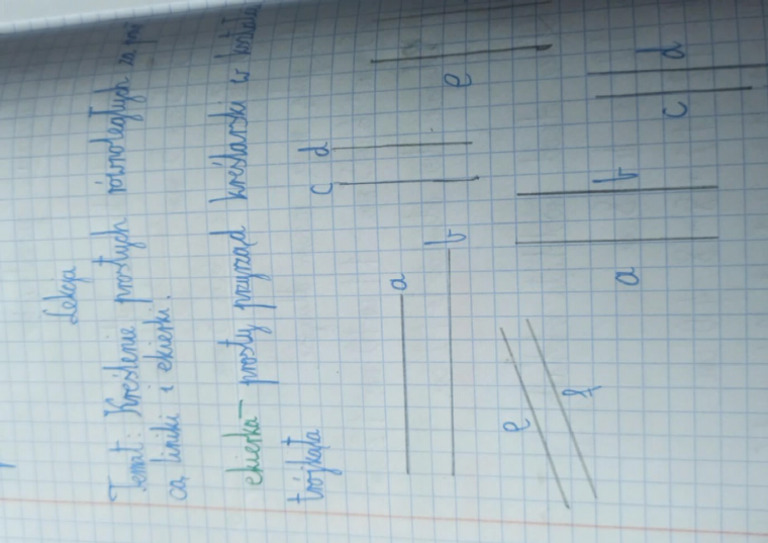 Lekcja
Temat: Kreślenie prostych równoległych za po
cą linijki i ekierki.
ekierka - prosty przyrząd kreślarski w kształcie
trójkąta
a
b
c
d
e
e
f
a
b
c
d